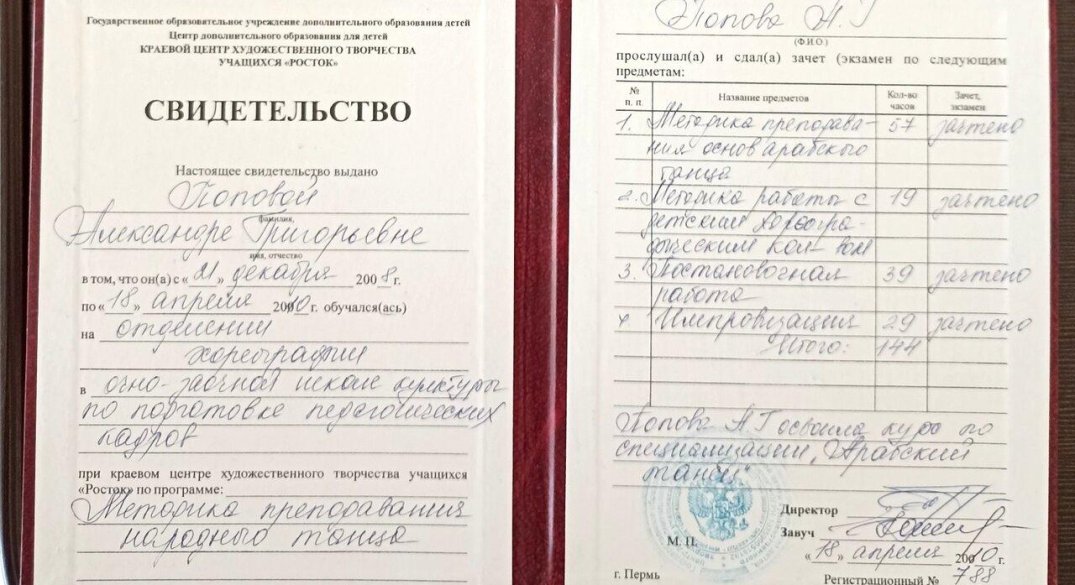 Государственное образовательное учреждение дополнительного образования детей
Центр дополнительного образования для детей
КРАЕВОЙ ЦЕНТР ХУДОЖЕСТВЕННОГО ТВОРЧЕСТВА
УЧАЩИХСЯ «РОСТОК»
СВИДЕТЕЛЬСТВО
Настоящее свидетельство выдано
Поповой
фамилия,
Александре Григорьевне
имя, отчество
в том, что он(а) с «21» декабря 2008 г.
по «18» апреля 2010 г. обучался(ась)
на отделении
хореографии
в очно-заочной школе культуры
по подготовке педагогических
кадров
при краевом центре художественного творчества учащихся
«Росток» по программе:
Методика преподавания
народного танца
Попова А.Г
(ФИО)
прослушал(а) и сдал(а) зачет (экзамен по следующим
предметам:
№ п. п. Название предметов Кол-во часов Зачет, экзамен
1. Методика преподава- 57 зачтено
ния основ арабского
танца
2. Методика работы с 19 зачтено
детским хореогра-
фическим кол-вом
3. Постановочная 39 зачтено
работа
4. Импровизация 29 зачтено
Итого: 144
Попова А.Г освоила курс по
специализации „Арабский
танец"
Директор
Завуч
М. П.
«18» апреля 2010 г.
г. Пермь Регистрационный № 788